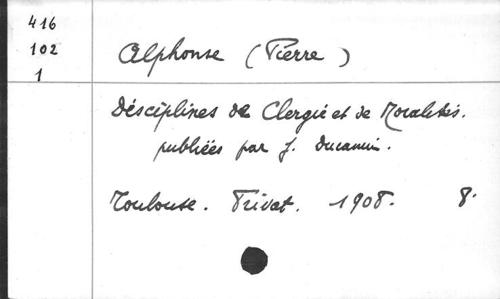 416
102
1
Alphonse (Pierre)
Désciplines de Clergie et de Moralités.
publiées par J. Ducamin.
Toulouse. Privat. 1908. 8.